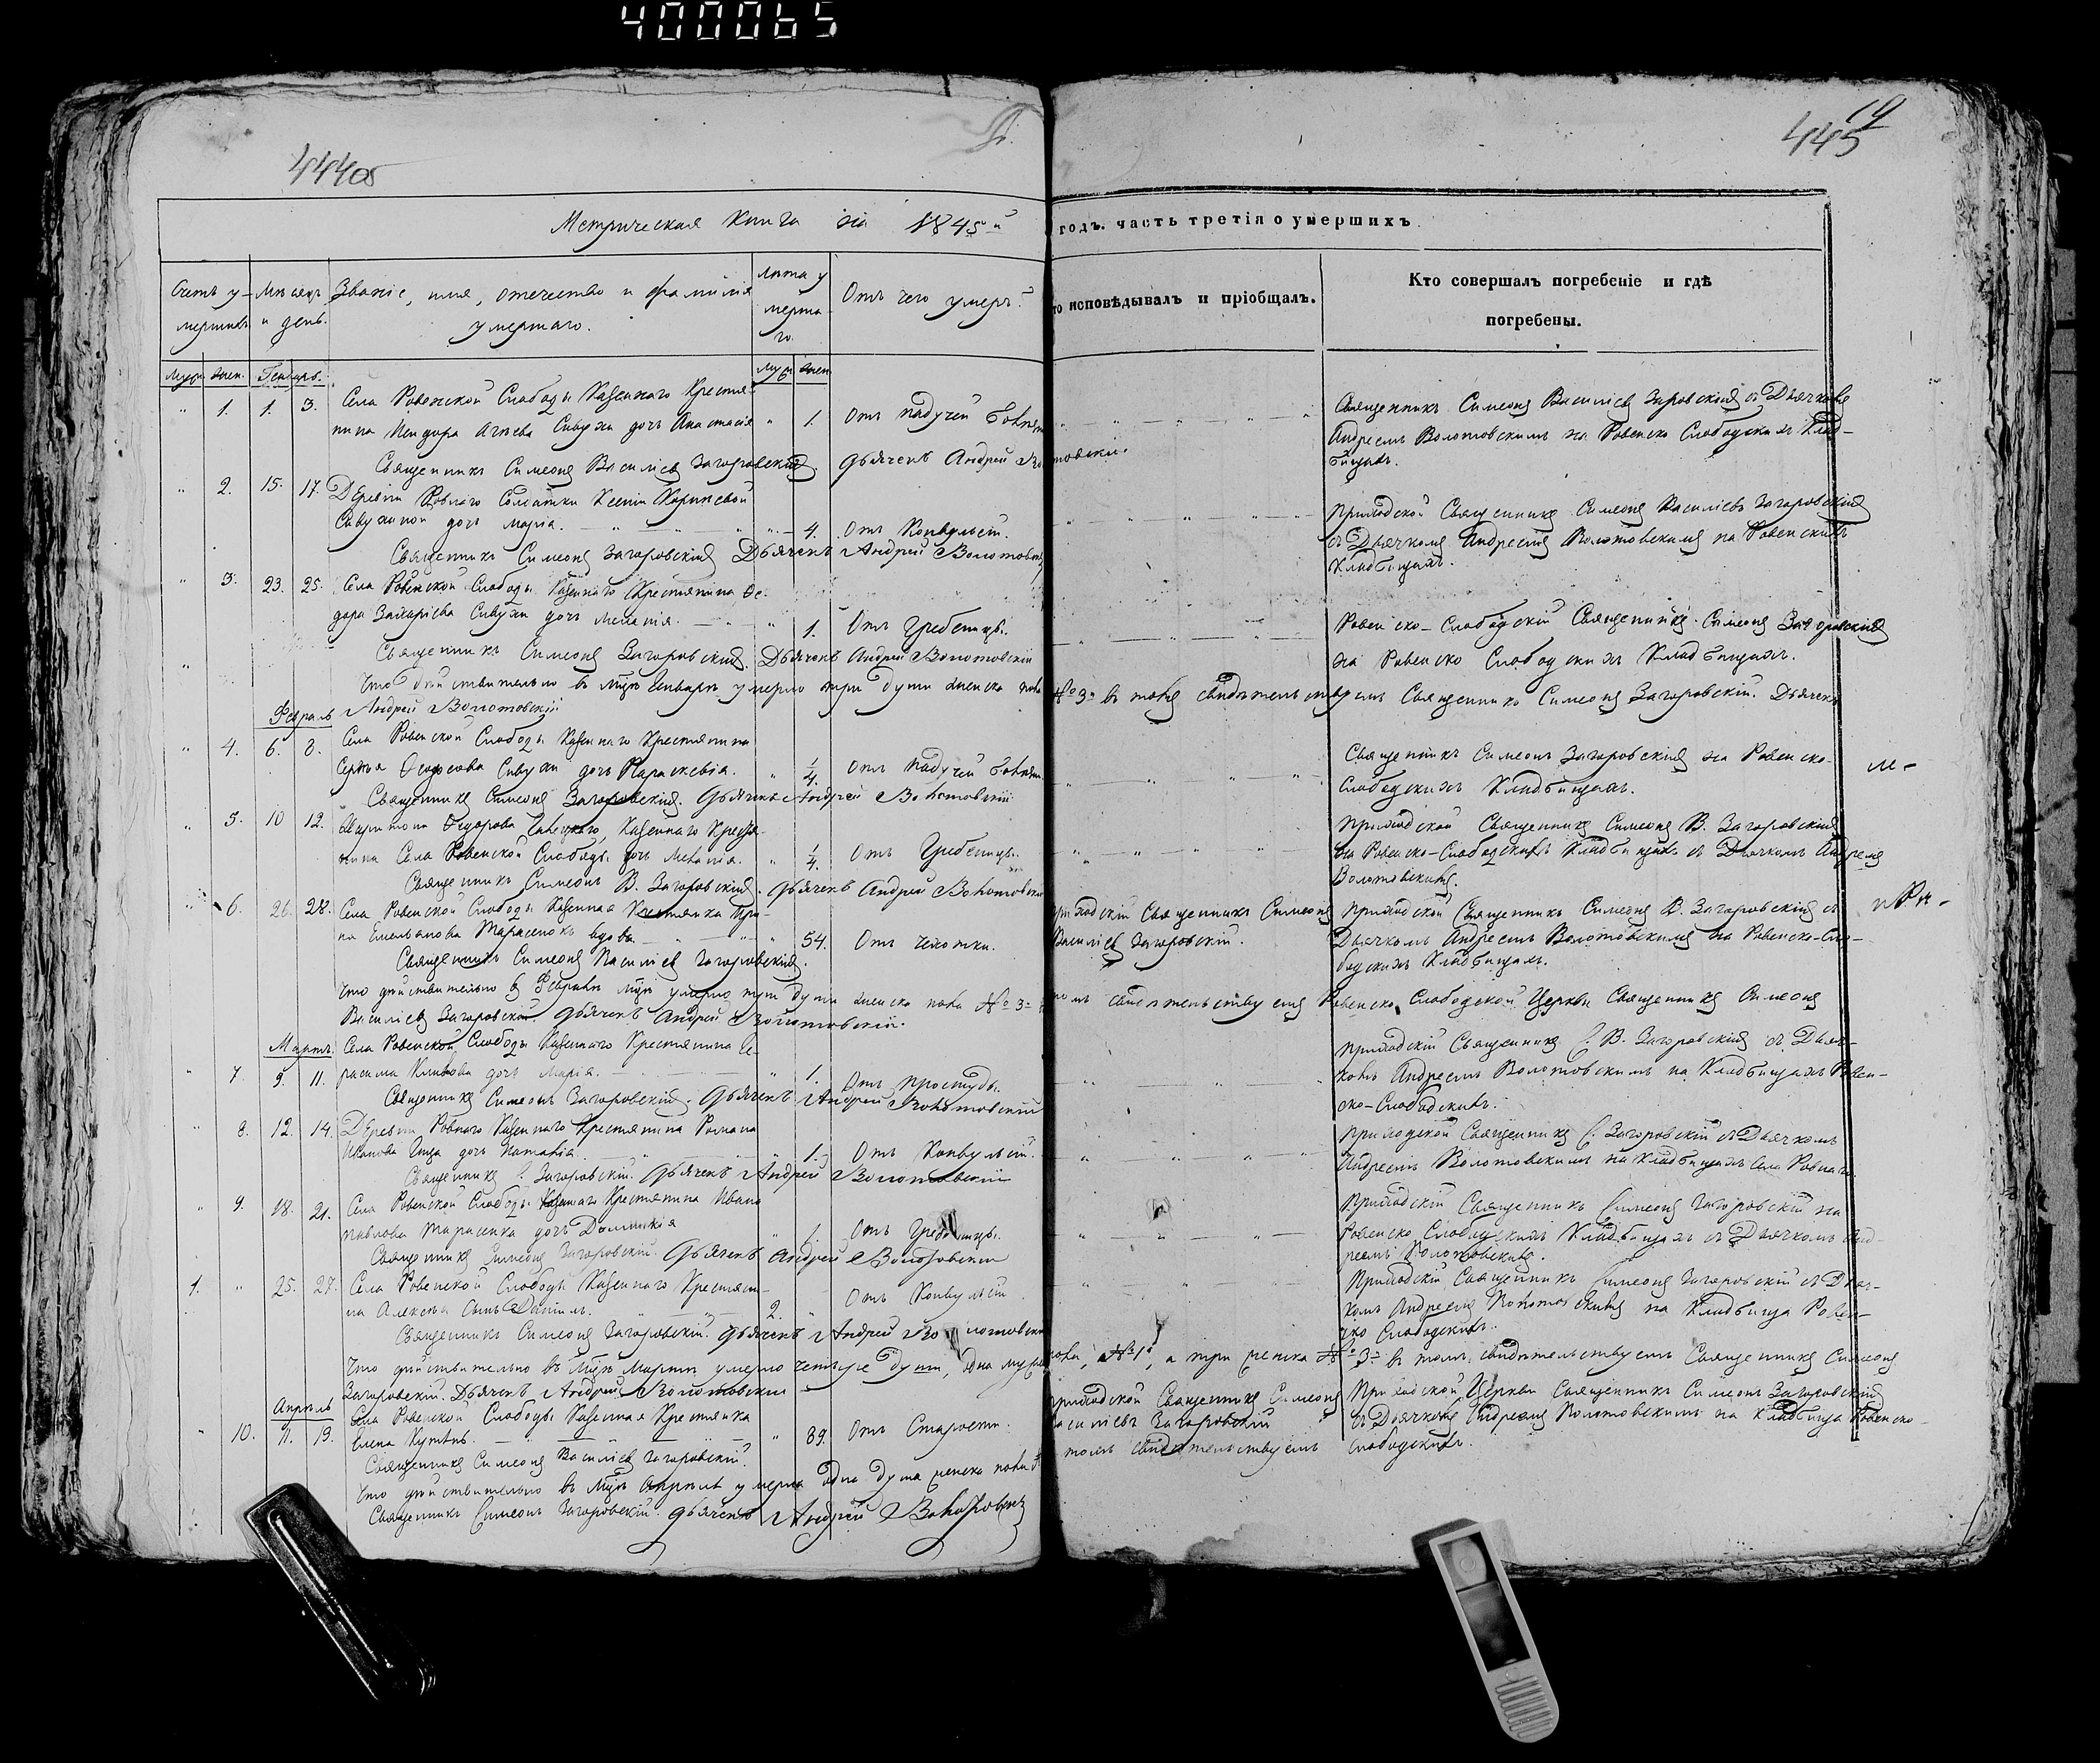 400065
444об
19
445
Метрическая книга на 1845й
годъ. часть третія о умершихъ.
Счетъ у-
мершихъ
Мѣсяцъ
и день.
Званіе, имя, отечество и фамилія
умершаго.
Лѣта у
мерша
го.
Отъ чего умеръ?
исповѣдывалъ и пріобщалъ.
Кто совершалъ погребеніе и гдѣ
погребены.
Муж. Жен. Генварь. Муж. Жен.
" 1. 1. 3. Села Ровенской Слободы Казеннаго Крестья-
нина Сивухи дочь Анастасія " 1. Отъ падучей
Священникъ Симеонъ Василіевъ Загоровскій. Дьячекъ Андрей
Священникъ Симеонъ Василіевъ Загоровскій съ Дьячкомъ
Андреемъ Волотовскимъ на Ровенско Слободскихъ Клад-
бищахъ.
" 2. 15. 17. Деревни Ровнаго Солдатки Ксеніи
Сивухиной дочь Марія. " 4. Отъ Конвульсій.
Священникъ Симеонъ Загоровскій Дьячекъ Андрей Волотовскій
Приходской Священникъ Симеонъ Василіевъ Загоровскій
съ Дьячкомъ Андреемъ Волотовскимъ на Ровенскихъ
Кладбищахъ.
" 3. 23. 25. Села Ровенской Слободы Казеннаго Крестьянина Ѳе-
дора Захаріева Сивухи дочь Меланія. " 1. Отъ
Священникъ Симеонъ Загоровскій. Дьячекъ Андрей Волотовскій
Ровенско-Слободскій Священникъ Симеонъ Загоровскій
на Ровенско Слободскихъ Кладбищахъ.
Что дѣйствительно въ Мцѣ Генварѣ умерло три души женска пола № 3 въ томъ свидѣтельствуемъ Священникъ Симеонъ Загоровскій. Дьячекъ
Андрей Волотовскій
Февраль
" 4. 6. 8. Села Ровенской Слободы Казеннаго Крестьянина
Сивухи дочь Параскевія. " 1/4. Отъ падучей
Священникъ Симеонъ Загоровскій. Дьячекъ Андрей Волотовскій
Священникъ Симеонъ Загоровскій на Ровенско-
Слободскихъ Кладбищахъ.
" 5. 10 12. Ѳедорова Казеннаго Крестья-
нина Села Ровенской Слободы дочь Меланія. " 1/4. Отъ
Священникъ Симеонъ В. Загоровскій. Дьячекъ Андрей Волотовскій
Приходской Священникъ Симеонъ В. Загоровскій
на Ровенско-Слободскихъ Кладбищахъ съ Дьячкомъ Андреемъ
Волотовскимъ.
6. 26. 28. Села Ровенской Слободы Казенная Крестьянка Ири-
на Емельянова Тарасенкова вдова " 54. Отъ чахотки.
Священникъ Симеонъ Василіевъ Загоровскій.
Приходскій Священникъ Симеонъ
Василіевъ Загоровскій.
Приходской Священникъ Симеонъ В. Загоровскій съ
Дьячкомъ Андреемъ Волотовскимъ на Ровенско-Сло-
бодскихъ Кладбищахъ.
Что дѣйствительно въ Февралѣ Мцѣ умерло три души женска пола № 3 томъ свидѣтельствуемъ Ровенско Слободской Церкви Священникъ Симеонъ
Василіевъ Загоровскій. Дьячекъ Андрей Волотовскій.
Мартъ.
" 7. 9. 11. Села Ровенской Слободы Казеннаго Крестьянина Ге-
расима дочь Марія. " 1. Отъ простуды.
Священникъ Симеонъ Загоровскій. Дьячекъ Андрей Волотовскій
Приходскій Священникъ С. В. Загоровскій съ Дьяч-
комъ Андреемъ Волотовскимъ на Кладбищахъ Ровен-
ско-Слободскихъ.
8. 12. 14. Деревни Ровнаго Казеннаго Крестьянина Романа
Иванова дочь Наталія. 1. Отъ Конвульсій.
Священникъ С. Загоровскій. Дьячекъ Андрей Волотовскій
Приходской Священникъ С. Загоровскій съ Дьячкомъ
Андреемъ Волотовскимъ на Кладбищахъ Села Ровнаго
" 9. 18. 21. Села Ровенской Слободы Казеннаго Крестьянина Ивана
Павлова Тарасенка дочь Домникія 1. Отъ
Священникъ Симеонъ Загоровскій. Дьячекъ Андрей Волотовскій
Приходскій Священникъ Симеонъ Загоровскій на
Ровенско Слободскихъ Кладбищахъ съ Дьячкомъ Анд-
реемъ Волотовскимъ.
1. " 25. 27. Села Ровенской Слободы Казеннаго Крестьяни-
на Алексѣя сынъ Даніилъ. 2. " Отъ Конвульсій
Священникъ Симеонъ Загоровскій. Дьячекъ Андрей Волотовскій
Приходскій Священникъ Симеонъ Загоровскій съ Дьяч-
комъ Андреемъ Волотовскимъ на Кладбищахъ Ровен-
ско Слободскихъ.
Что дѣйствительно въ Мцѣ Мартѣ умерло четыре души, одна мужеска пола, № 1, а три женска № 3 въ томъ свидѣтельствуемъ Священникъ Симеонъ
Загоровскій. Дьячекъ Андрей Волотовскій
Апрѣль
" 10. 11. 13. Села Ровенской Слободы Казенная Крестьянка
Елена " 89. Отъ Старости.
Священникъ Симеонъ Василіевъ Загоровскій.
Приходской Священникъ Симеонъ
Василіевъ Загоровскій
Приходской Церкви Священникъ Симеонъ Загоровскій
съ Дьячкомъ Андреемъ Волотовскимъ на Кладбищахъ Ровенско-
Слободскихъ.
Что дѣйствительно въ Мцѣ Апрѣлѣ умерла одна душа женска пола томъ свидѣтельствуемъ
Священникъ Симеонъ Загоровскій. Дьячекъ Андрей Волотовскій